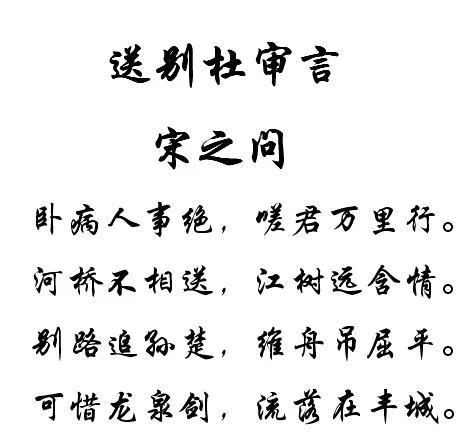 送别杜审言
宋之问
卧病人事绝，嗟君万里行。
河桥不相送，江树远含情。
别路追孙楚，维舟吊屈平。
可惜龙泉剑，流落在丰城。